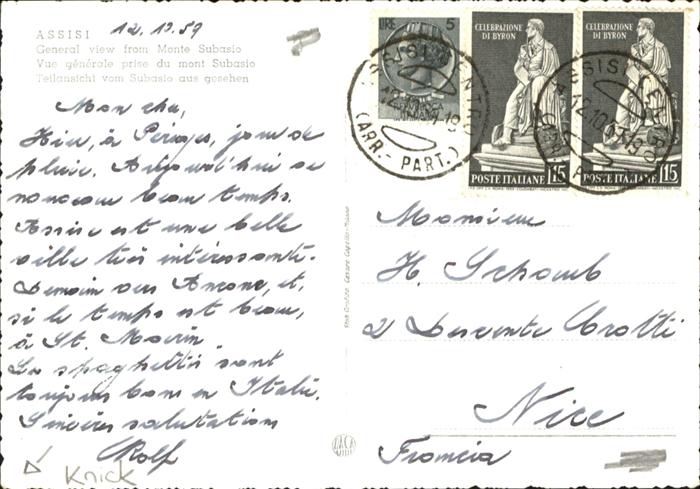 ASSISI 12.10.59
General view from Monte Subasio
Vue générale prise du mont Subasio
Teilansicht vom Subasio aus gesehen
Mon cher,
Hier, à Peruges, jour de
pluie. Aujourd'hui de
nouveau beau temps.
Assise est une belle
ville très intéressante.
Demain vers Ancone, et,
si le temps est beau,
à St. Marin.
Les spaghettis sont
toujours bons en Italie.
Sincères salutations
Rolf
Knick
LIRE 5
CELEBRAZIONE
DI BYRON
POSTE ITALIANE 115
CELEBRAZIONE
DI BYRON
POSTE ITALIANE 115
ASSISI CENTRO
12.10.59-19
(ARR.- PART.)
ASSISI CENTRO
12.10.59-19
Monsieur
H. Schomb
2 Descente Crotti
Nice
Francia